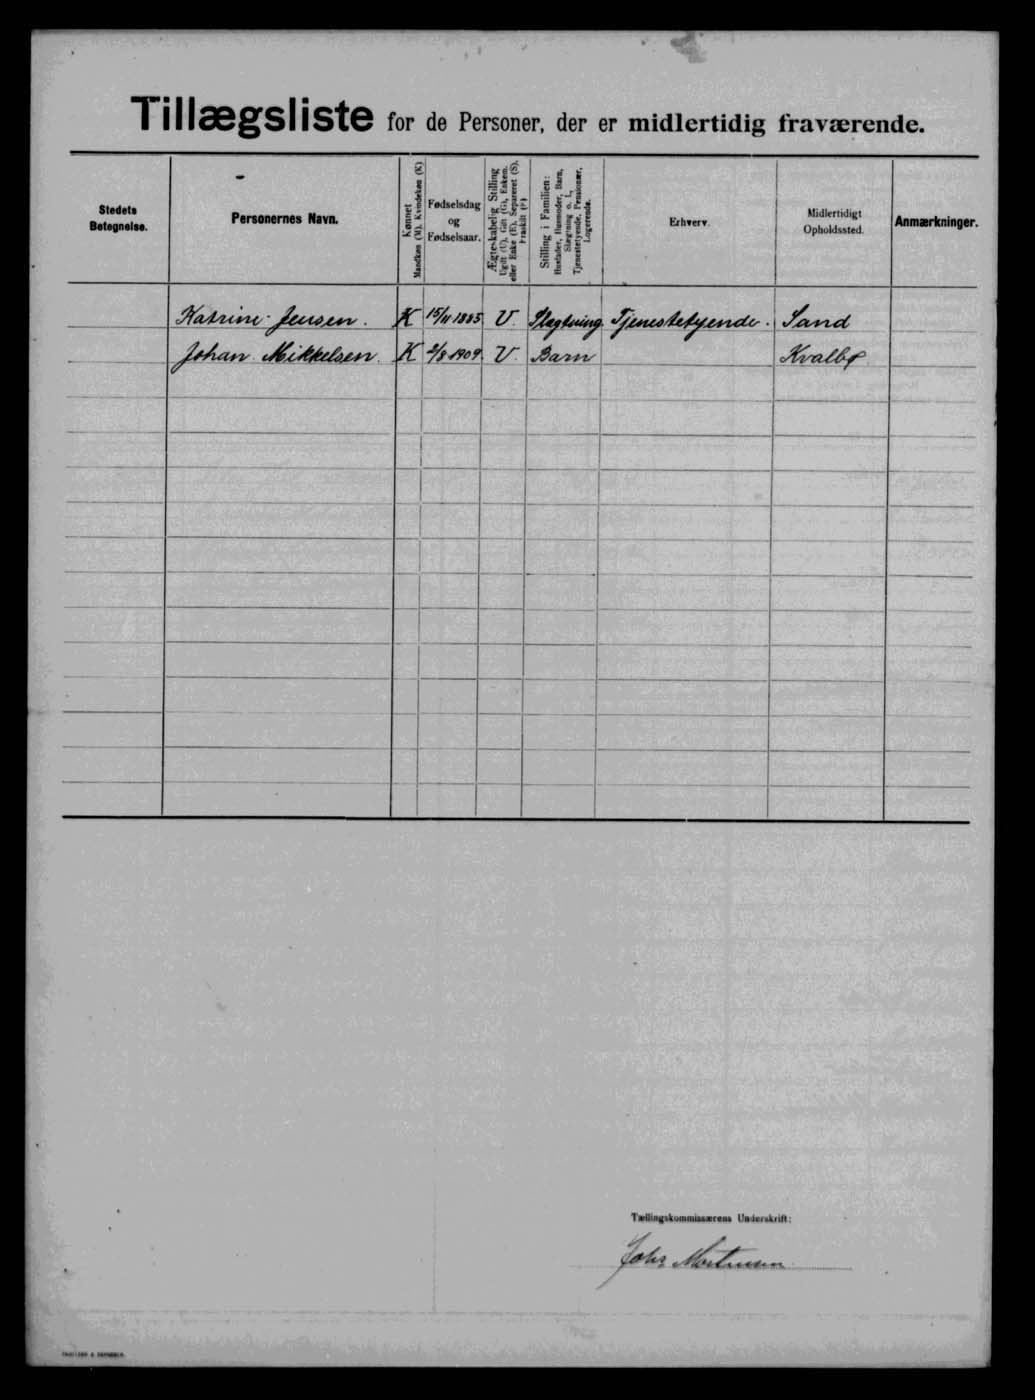 Tillægsliste for de Personer, der er midlertidig fraværende.
Stedets Betegnelse.
Personernes Navn.
Kønnet Mandkøn (M), Kvindekøn (K)
Fødselsdag og Fødselsaar.
Ægteskabelig Stilling Ugift (U), Gift (G), Enkem. eller Enke (E), Separeret (S), Fraskilt (F)
Stilling i Familien: Husfader, Husmoder, Barn, Slægtning o. l., Tjenestetyende, Pensionær, Logerende.
Erhverv.
Midlertidigt Opholdssted.
Anmærkninger.
Katrine Jensen. K 15/11 1885 U. Slægtning Tjenestetyende. Sand
Johan Mikkelsen. K 2/8 1909 U. Barn Kvalbø
Tællingskommissærens Underskrift:
Johs Mortensen